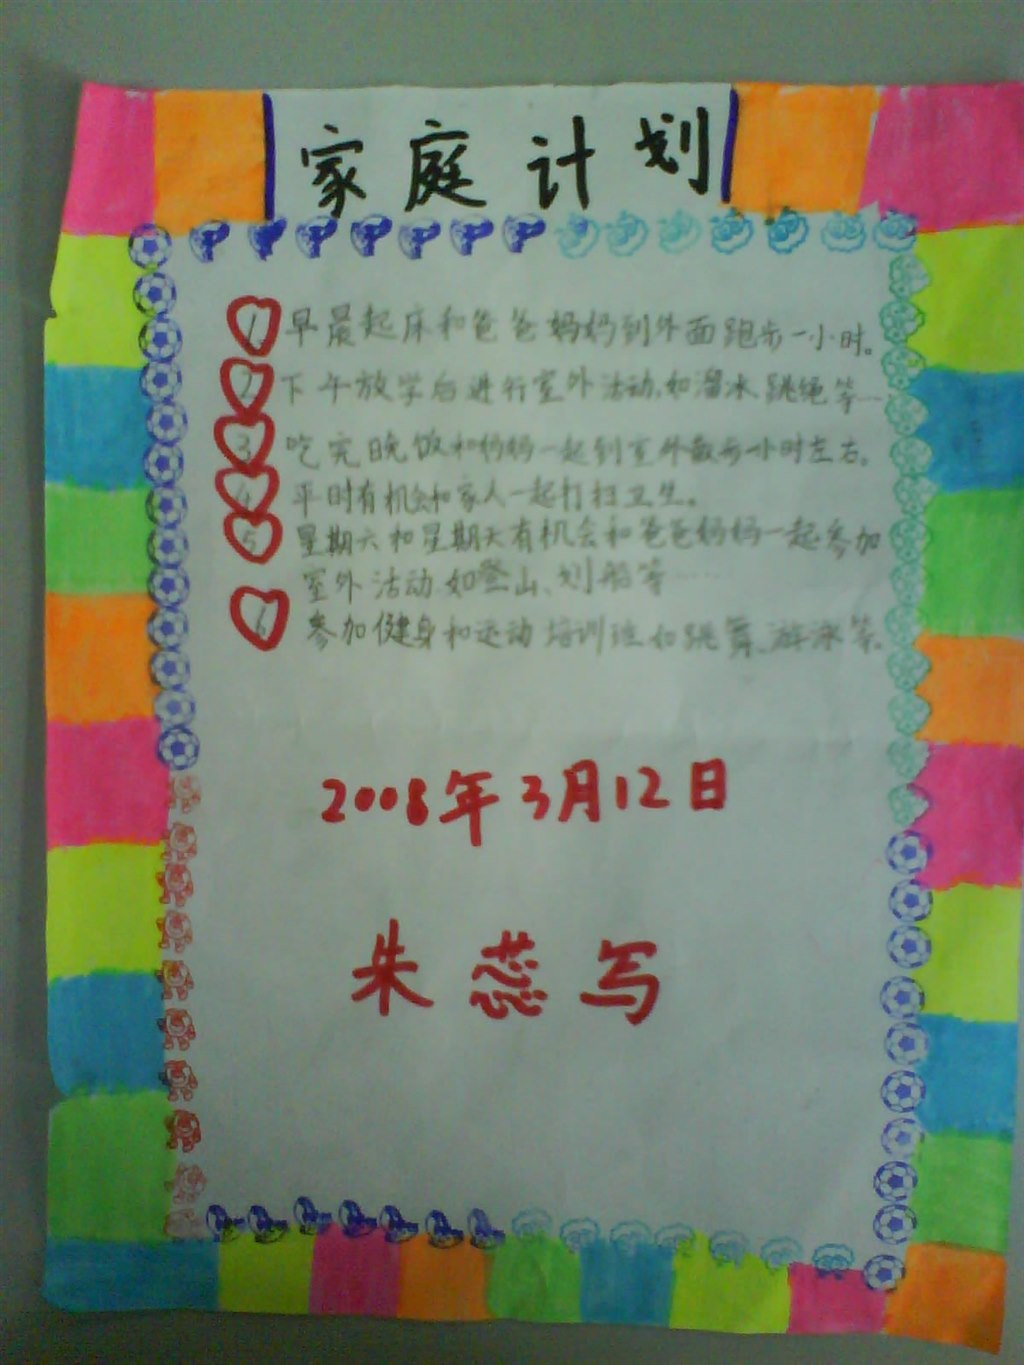 家庭计划
1 早晨起床和爸爸妈妈到外面跑步一小时。
2 下午放学后进行室外活动,如溜冰 跳绳等……
3 吃完晚饭和妈妈一起到室外散步一小时左右。
4 平时有机会和家人一起打扫卫生。
5 星期六和星期天有机会和爸爸妈妈一起参加
室外活动 如登山、划船等……
6 参加健身和运动培训班如跳舞、游泳等。
2008年3月12日
朱蕊写